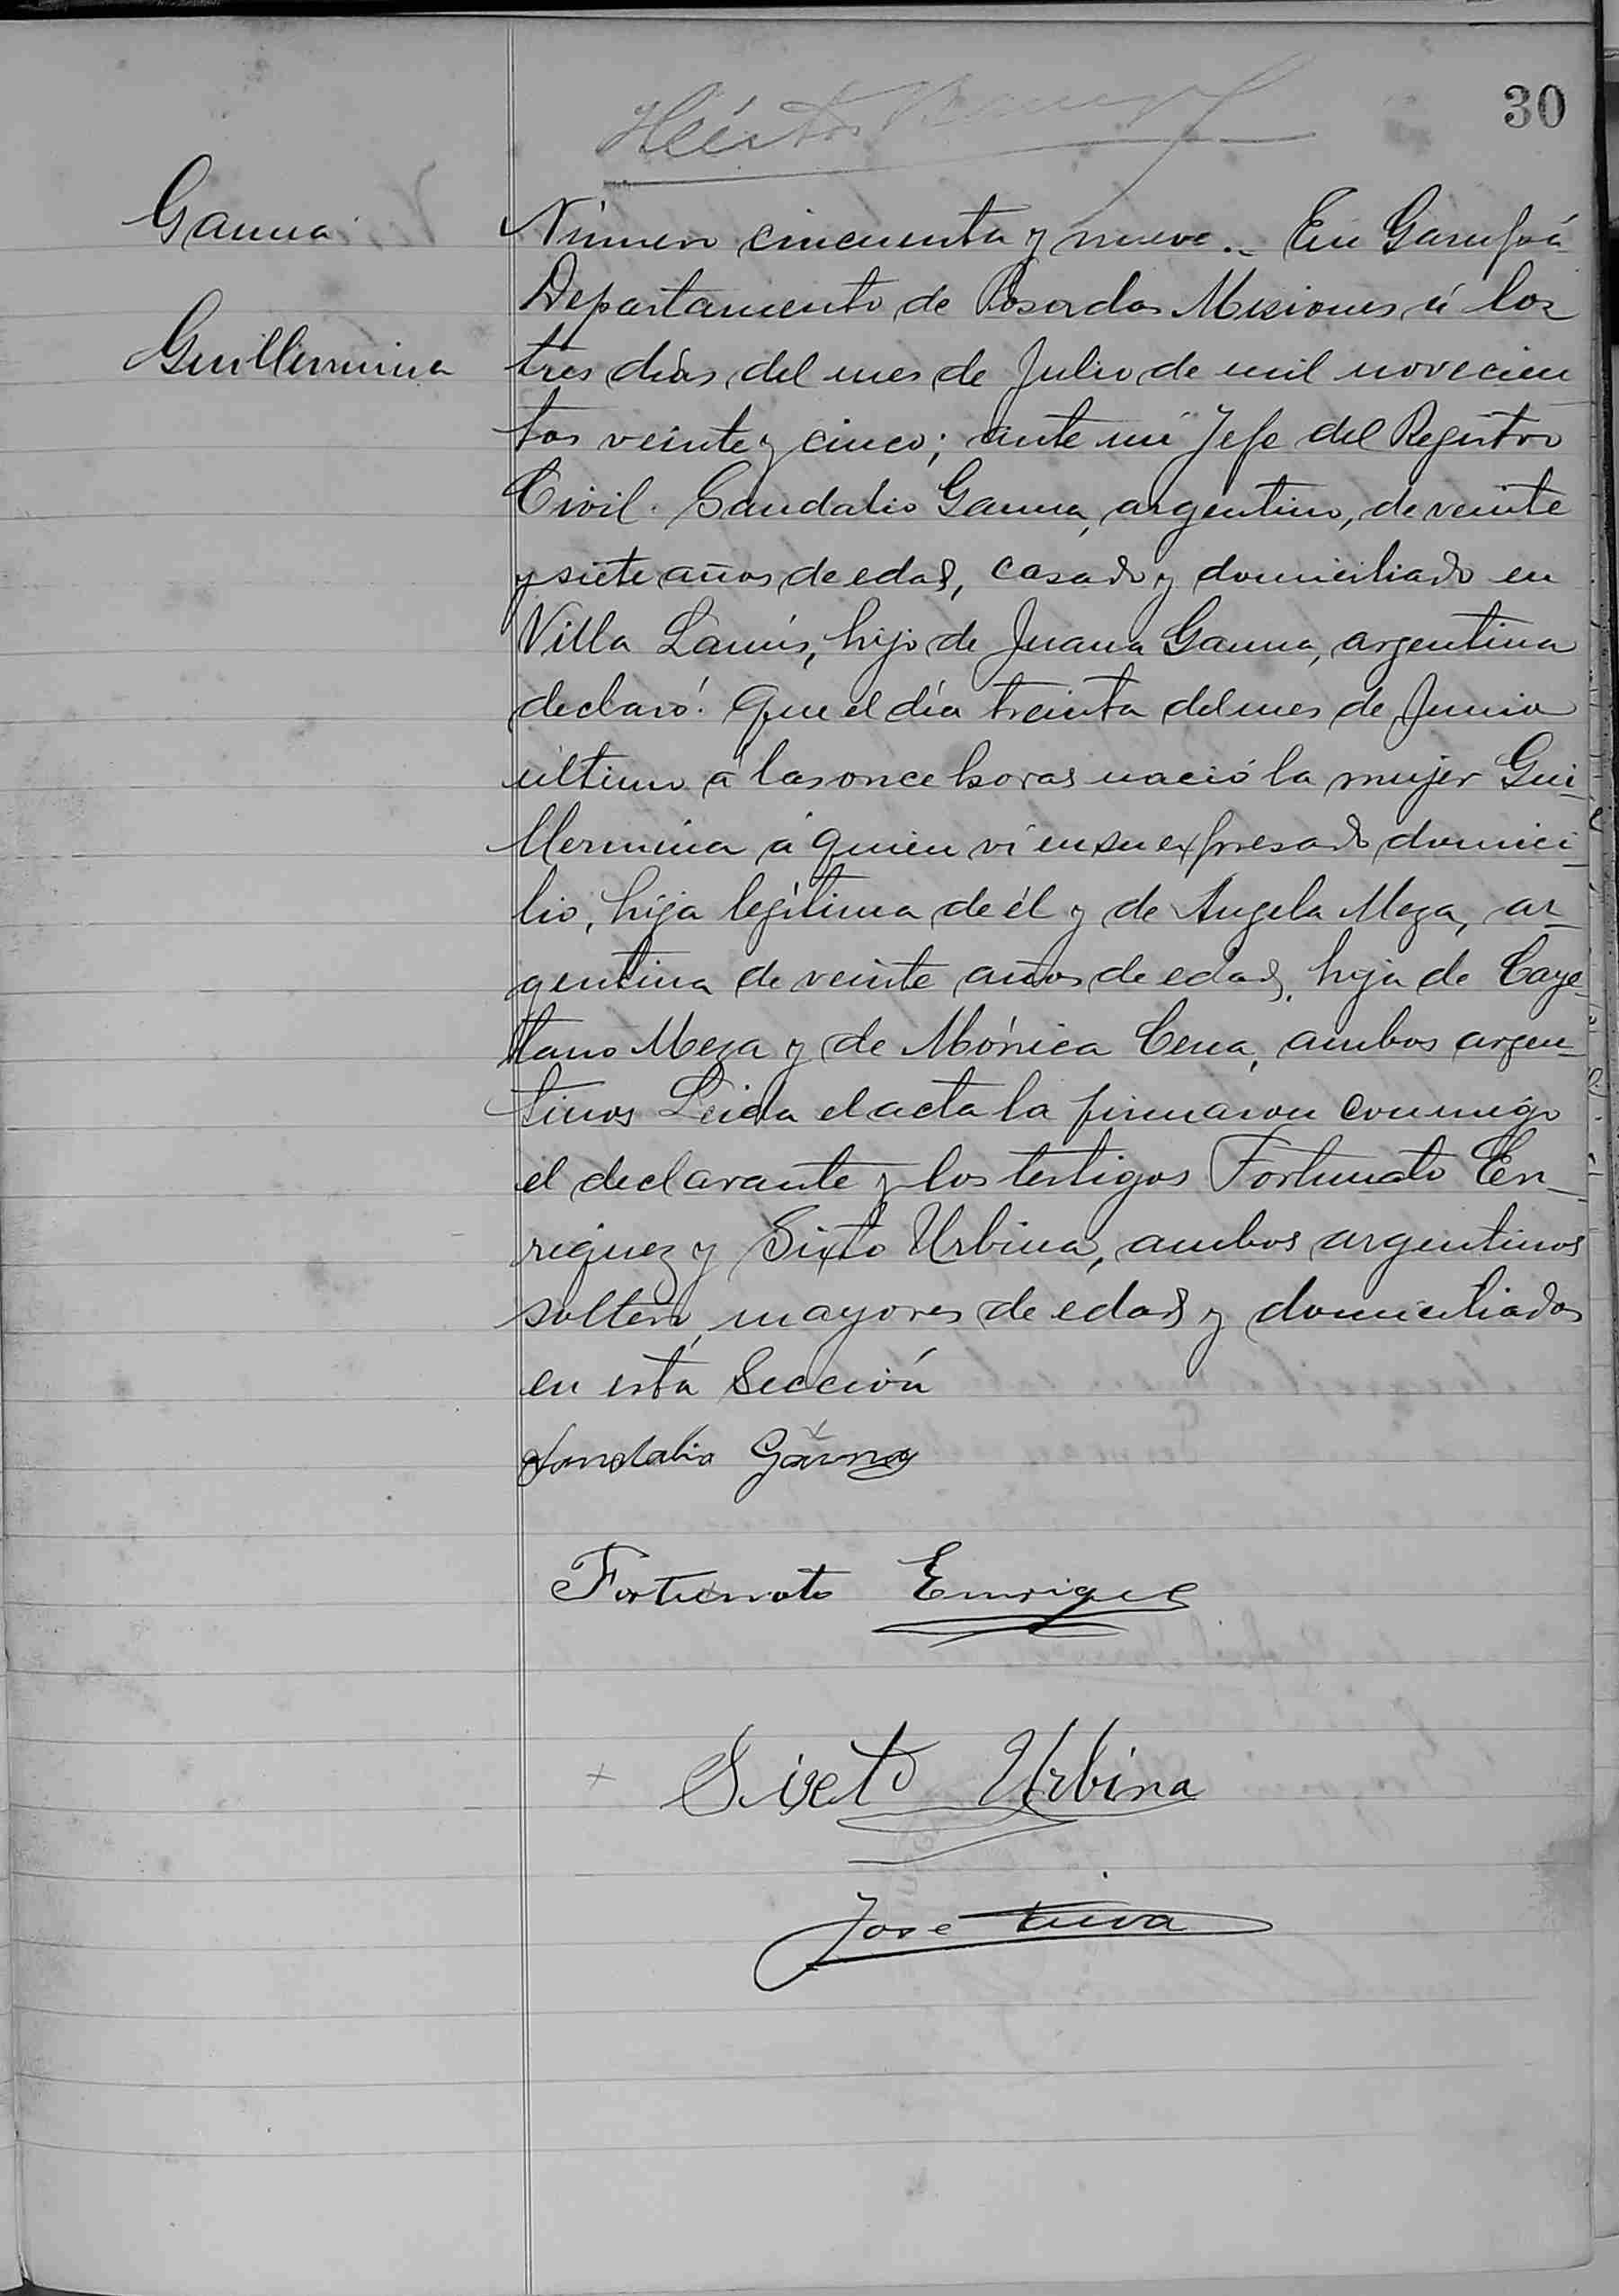 30
Héctor
Gauna
Guillermina
Número cincuenta y nueve.- En Garupá
Departamento de Posadas Misiones á los
tres días del mes de Julio de mil novecien
tos veinte y cinco; ante mi Jefe del Registro
Civil. Sandalio Gauna, argentino, de veinte
y siete años de edad, casado y domiciliado en
Villa Lanús, hijo de Juana Gauna, argentina
declaró: Que el día treinta del mes de Junio
último á las once horas nació la mujer Gui-
llermina á quien ví en su expresado domici-
lio, hija legítima de él y de Angela Meza, ar-
gentina de veinte años de edad, hija de Caye-
tano Meza y de Mónica Cena, ambos argen-
tinos Leída el acta la firmaron conmigo
el declarante y los testigos Fortunato En-
riquez y Sixto Urbina, ambos argentinos
soltero, mayores de edad y domiciliados
en esta Sección
Sandalio Gauna
Fortunato Enriques
Sixto Urbina
José